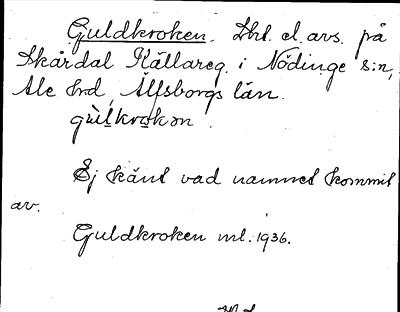 Guldkroken. Lht. el. avs. på
Skårdal Källareg. i Nödinge s:n,
Ale hrd, Älfsborgs län.
gùlkrokon
Ej känt vad namnet kommit
av.
Guldkroken ml. 1936.